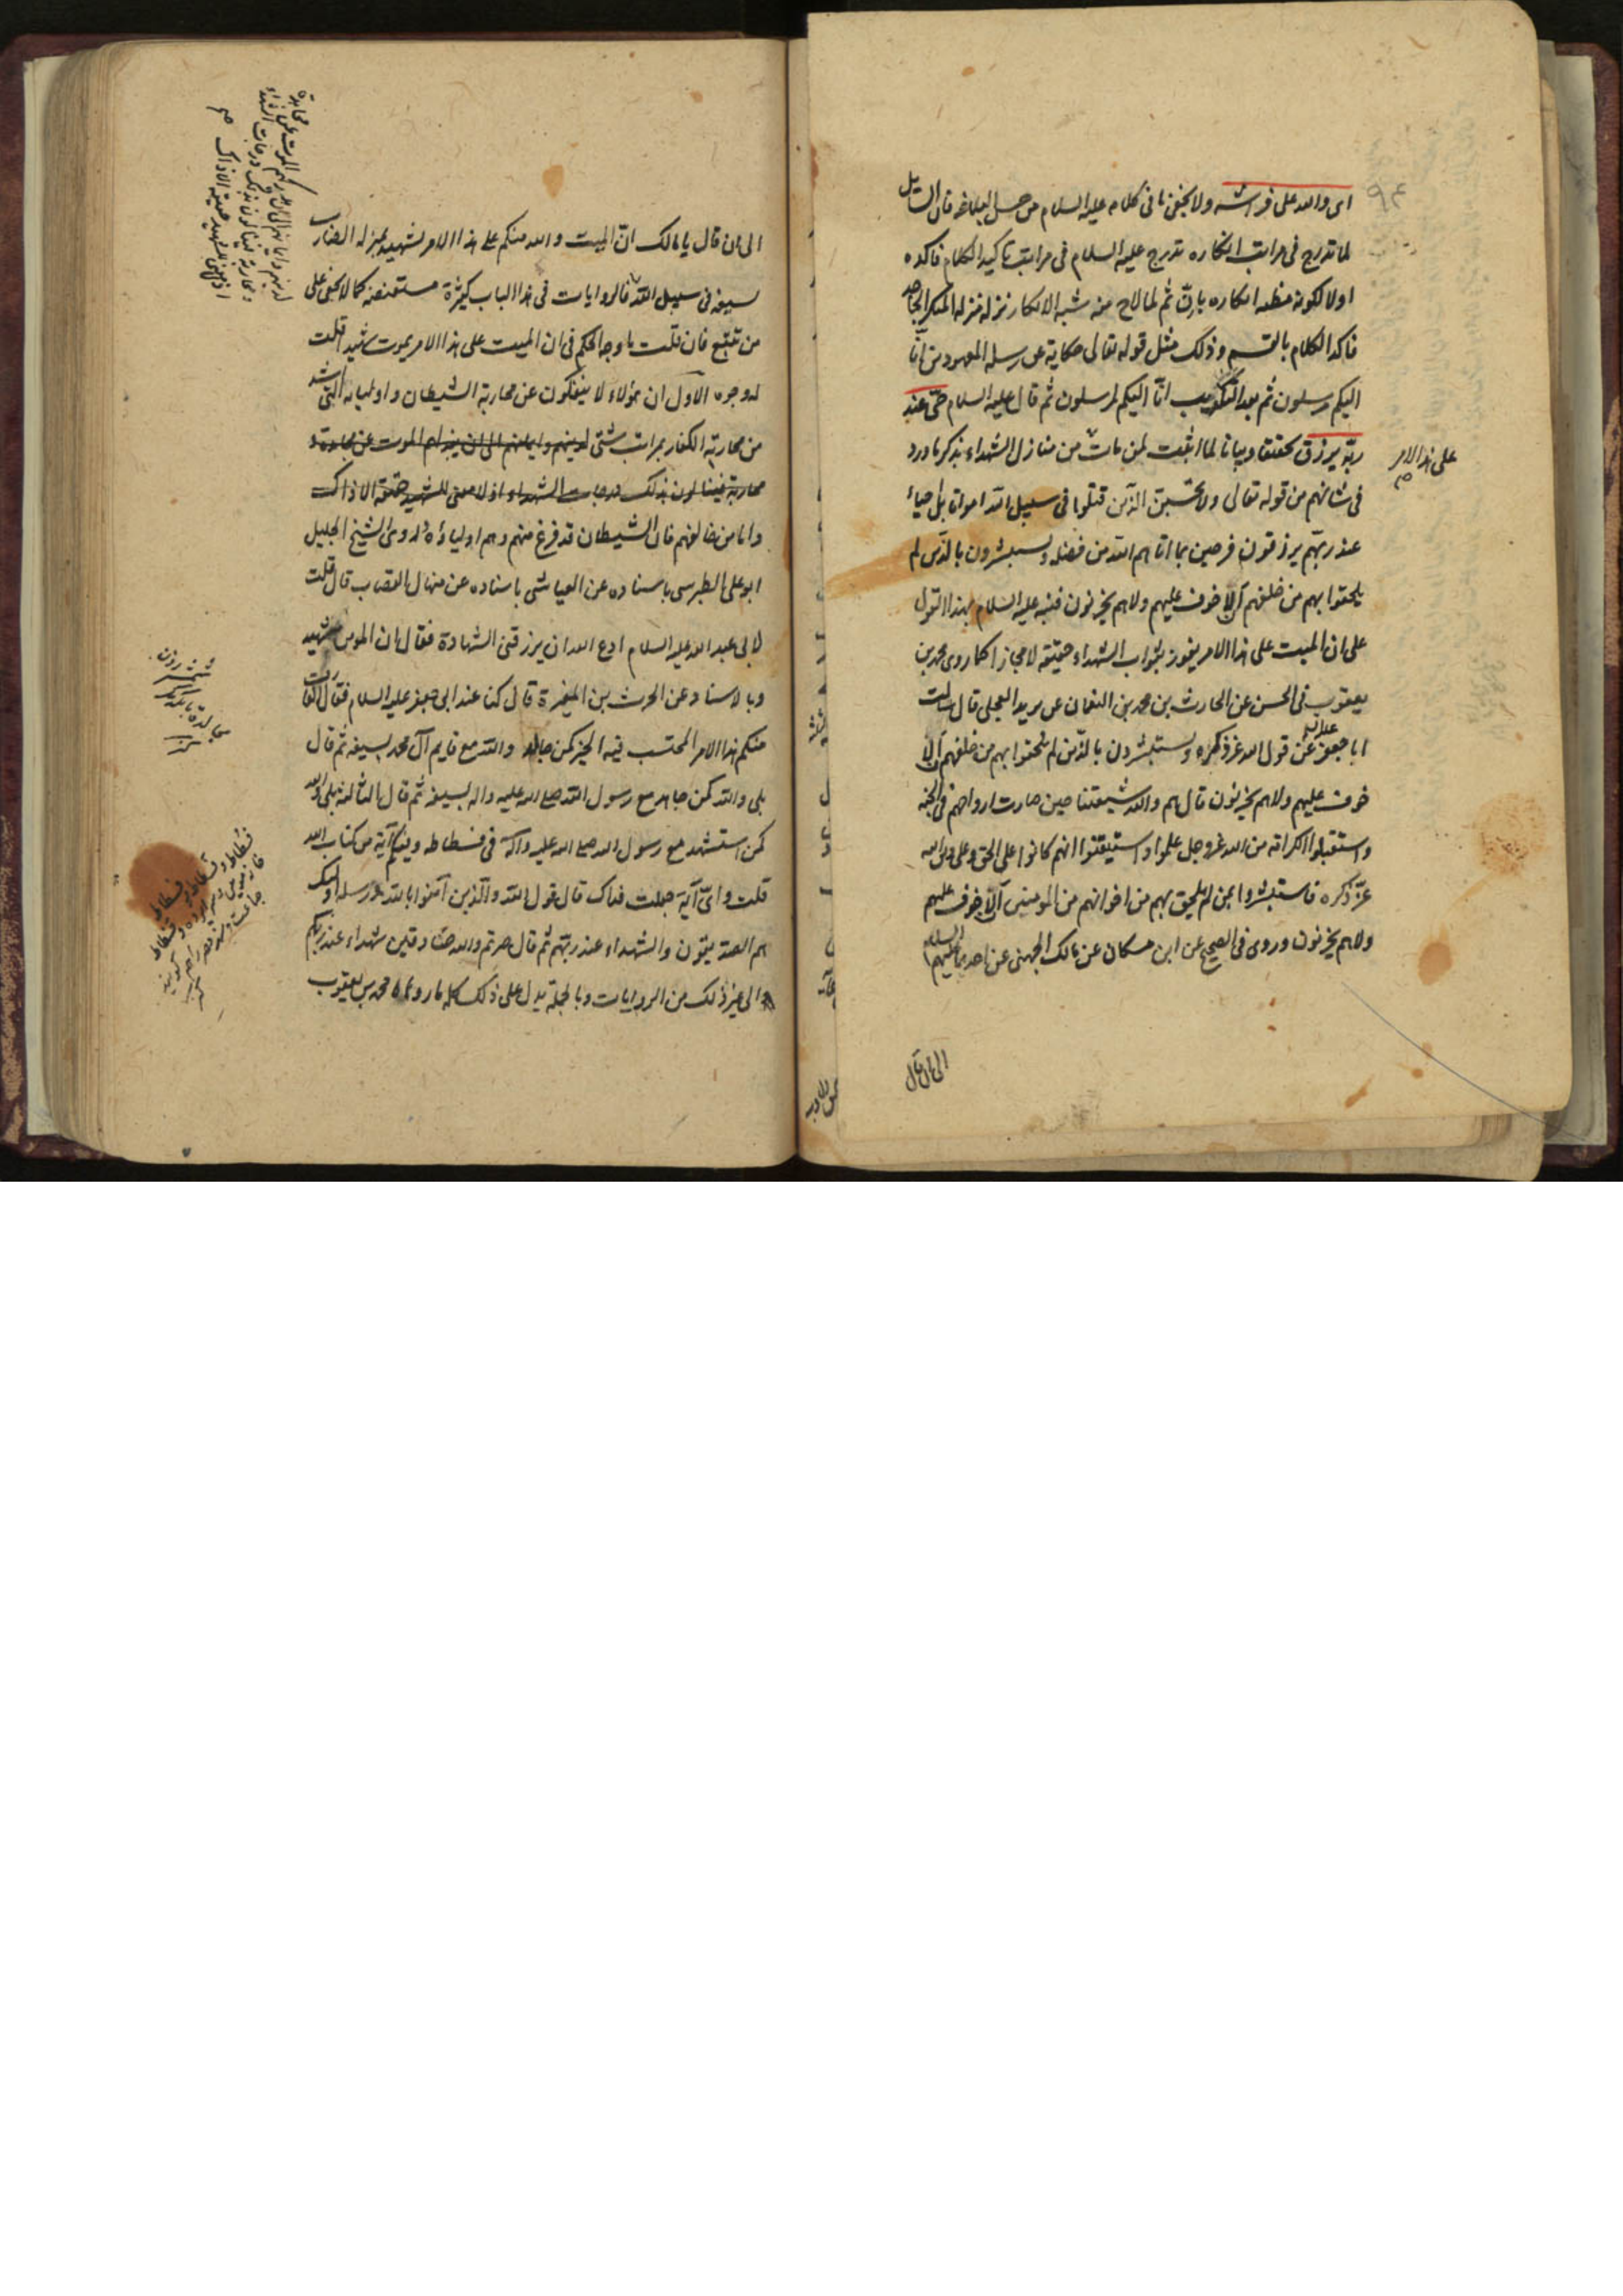 ٩٤
اى والله على فراشه ولا يخفى ما فى كلامه عليه السلام من حسن البلاغه فان السائل
لما تدرج فى مراتب انكاره تدرج عليه السلام فى مراتب تاكيد الكلام فاكده
اولا لكونه مظنه انكاره بانّ ثم لما لاح منه شبه الانكار نزله منزله المنكر الجاحد
فاكد الكلام بالقسم وذلك مثل قوله تعالى حكاية عن رسله المعهودين انّا
اليكم مرسلون ثم بعد التكذيب انّا اليكم لمرسلون ثم قال عليه السلام حىّ عند
ربّه يرزق تحقيقا وبيانا لما اثبت لمن مات من منازل الشهداء بذكر ما ورد
على هذا الامر
فى شانهم من قوله تعالى ولا تحسبنّ الذين قتلوا فى سبيل الله امواتا بل احياء
عند ربّهم يرزقون فرحين بما اتاهم الله من فضله ويستبشرون بالذين لم
يلحقوا بهم من خلفهم الّا خوف عليهم ولا هم يحزنون فنبه عليه السلام بهذا القول
على ان الميت على هذا الامر يفوز بثواب الشهداء حقيقه لا مجازا كما روى محمد بن
يعقوب فى الحسن عن الحارث بن محمد بن النعمان عن بريد العجلى قال سالت
ابا جعفر عليه السلم عن قول الله عز ذكره ويستبشرون بالذين لم يلحقوا بهم من خلفهم الّا
خوف عليهم ولا هم يحزنون قال هم والله شيعتنا حين صارت ارواحهم فى الجنه
واستقبلوا الكرامه من الله عز وجل علموا واستيقنوا انهم كانوا على الحق وعلى دين الله
عزّ ذكره فاستبشروا بمن لم يلحق بهم من اخوانهم من المومنين الّا خوف عليهم
ولا هم يحزنون وروى فى الصحيح عن ابن مسكان عن مالك الجهنى عن احدهما عليهم السلام
الى ان قال
الى ان قال يا مالك انّ الميت والله منكم على هذا الامر لشهيد بمنزله الضارب
بسيفه فى سبيل الله فالروايات فى هذا الباب كثيرة مستفيضه كما لا يخفى على
من تتبع فان قلت ما وجه الحكم فى ان الميت على هذا الامر يموت شهيدا قلت
له وجوه الاول ان هؤلاء لا ينفكون عن محاربة الشيطان واوليائه التى اشد
من محاربة الكفار بمراتب شتى لدينهم وايمانهم الى ان يدركهم الموت عن مجاهدة و
محاربة فينالون بذلك درجات الشهداء اذ لا معنى للشهيد حقيقة الا ذاك
واما من خالفهم فان الشيطان قد فرغ منهم وهم اولياؤه وروى الشيخ الجليل
ابو على الطبرسى باسناده عن العياشى باسناده عن منهال القصاب قال قلت
لابى عبد الله عليه السلام ادع الله ان يرزقنى الشهادة فقال ان المومن شهيد
وبالاسناد عن الحرث بن المغيرة قال كنا عند ابى جعفر عليه السلام فقال العارف
منكم هذا الامر المحتسب فيه الخير كمن جاهد والله مع قايم آل محمد بسيفه ثم قال
بلى والله كمن جاهد مع رسول الله صلى الله عليه واله بسيفه ثم قال الثالثه بلى والله
كمن استشهد مع رسول الله صلى الله عليه واله فى فسطاطه وفيكم آية من كتاب الله
قلت واىّ آية جعلت فداك قال قول الله والذين آمنوا بالله ورسله اولئك
هم الصدّيقون والشهداء عند ربّهم ثم قال صرتم والله صادقين شهداء عند ربّكم
الى غير ذلك من الروايات وبالجملة يدل على ذلك كله ما رواه محمد بن يعقوب